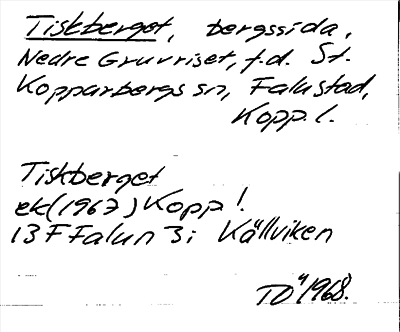 Tiskberget, bergssida,
Nedre Gruvriset, f.d. St.
Kopparbergs sn, Falu stad,
Kopp. l.
Tiskberget
ek (1967) Kopp!
13F Falun 3i Källviken
TÖ 1968.